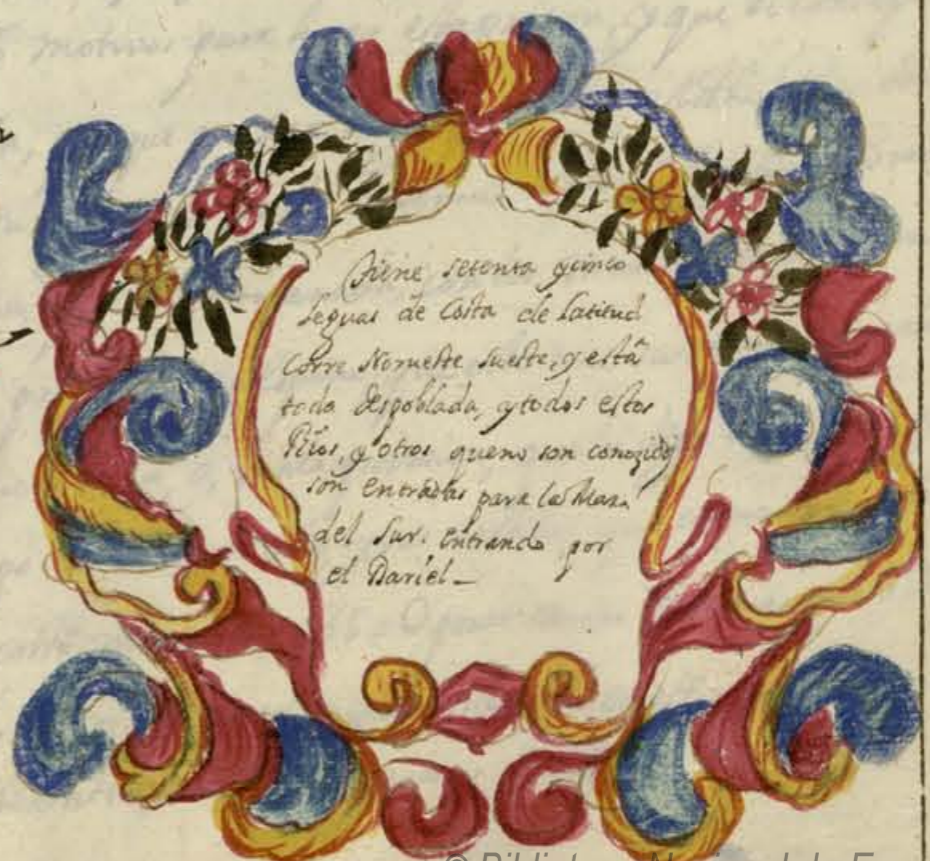 Tiene setenta y cinco
leguas de Costa de latitud
Corre Norueste Sueste, y está
toda despoblada, y todos estos
Rios, y otros que no son conozidos
son entradas para la Mar
del Sur. entrando por
el Dariel_
© Biblioteca Nacional de